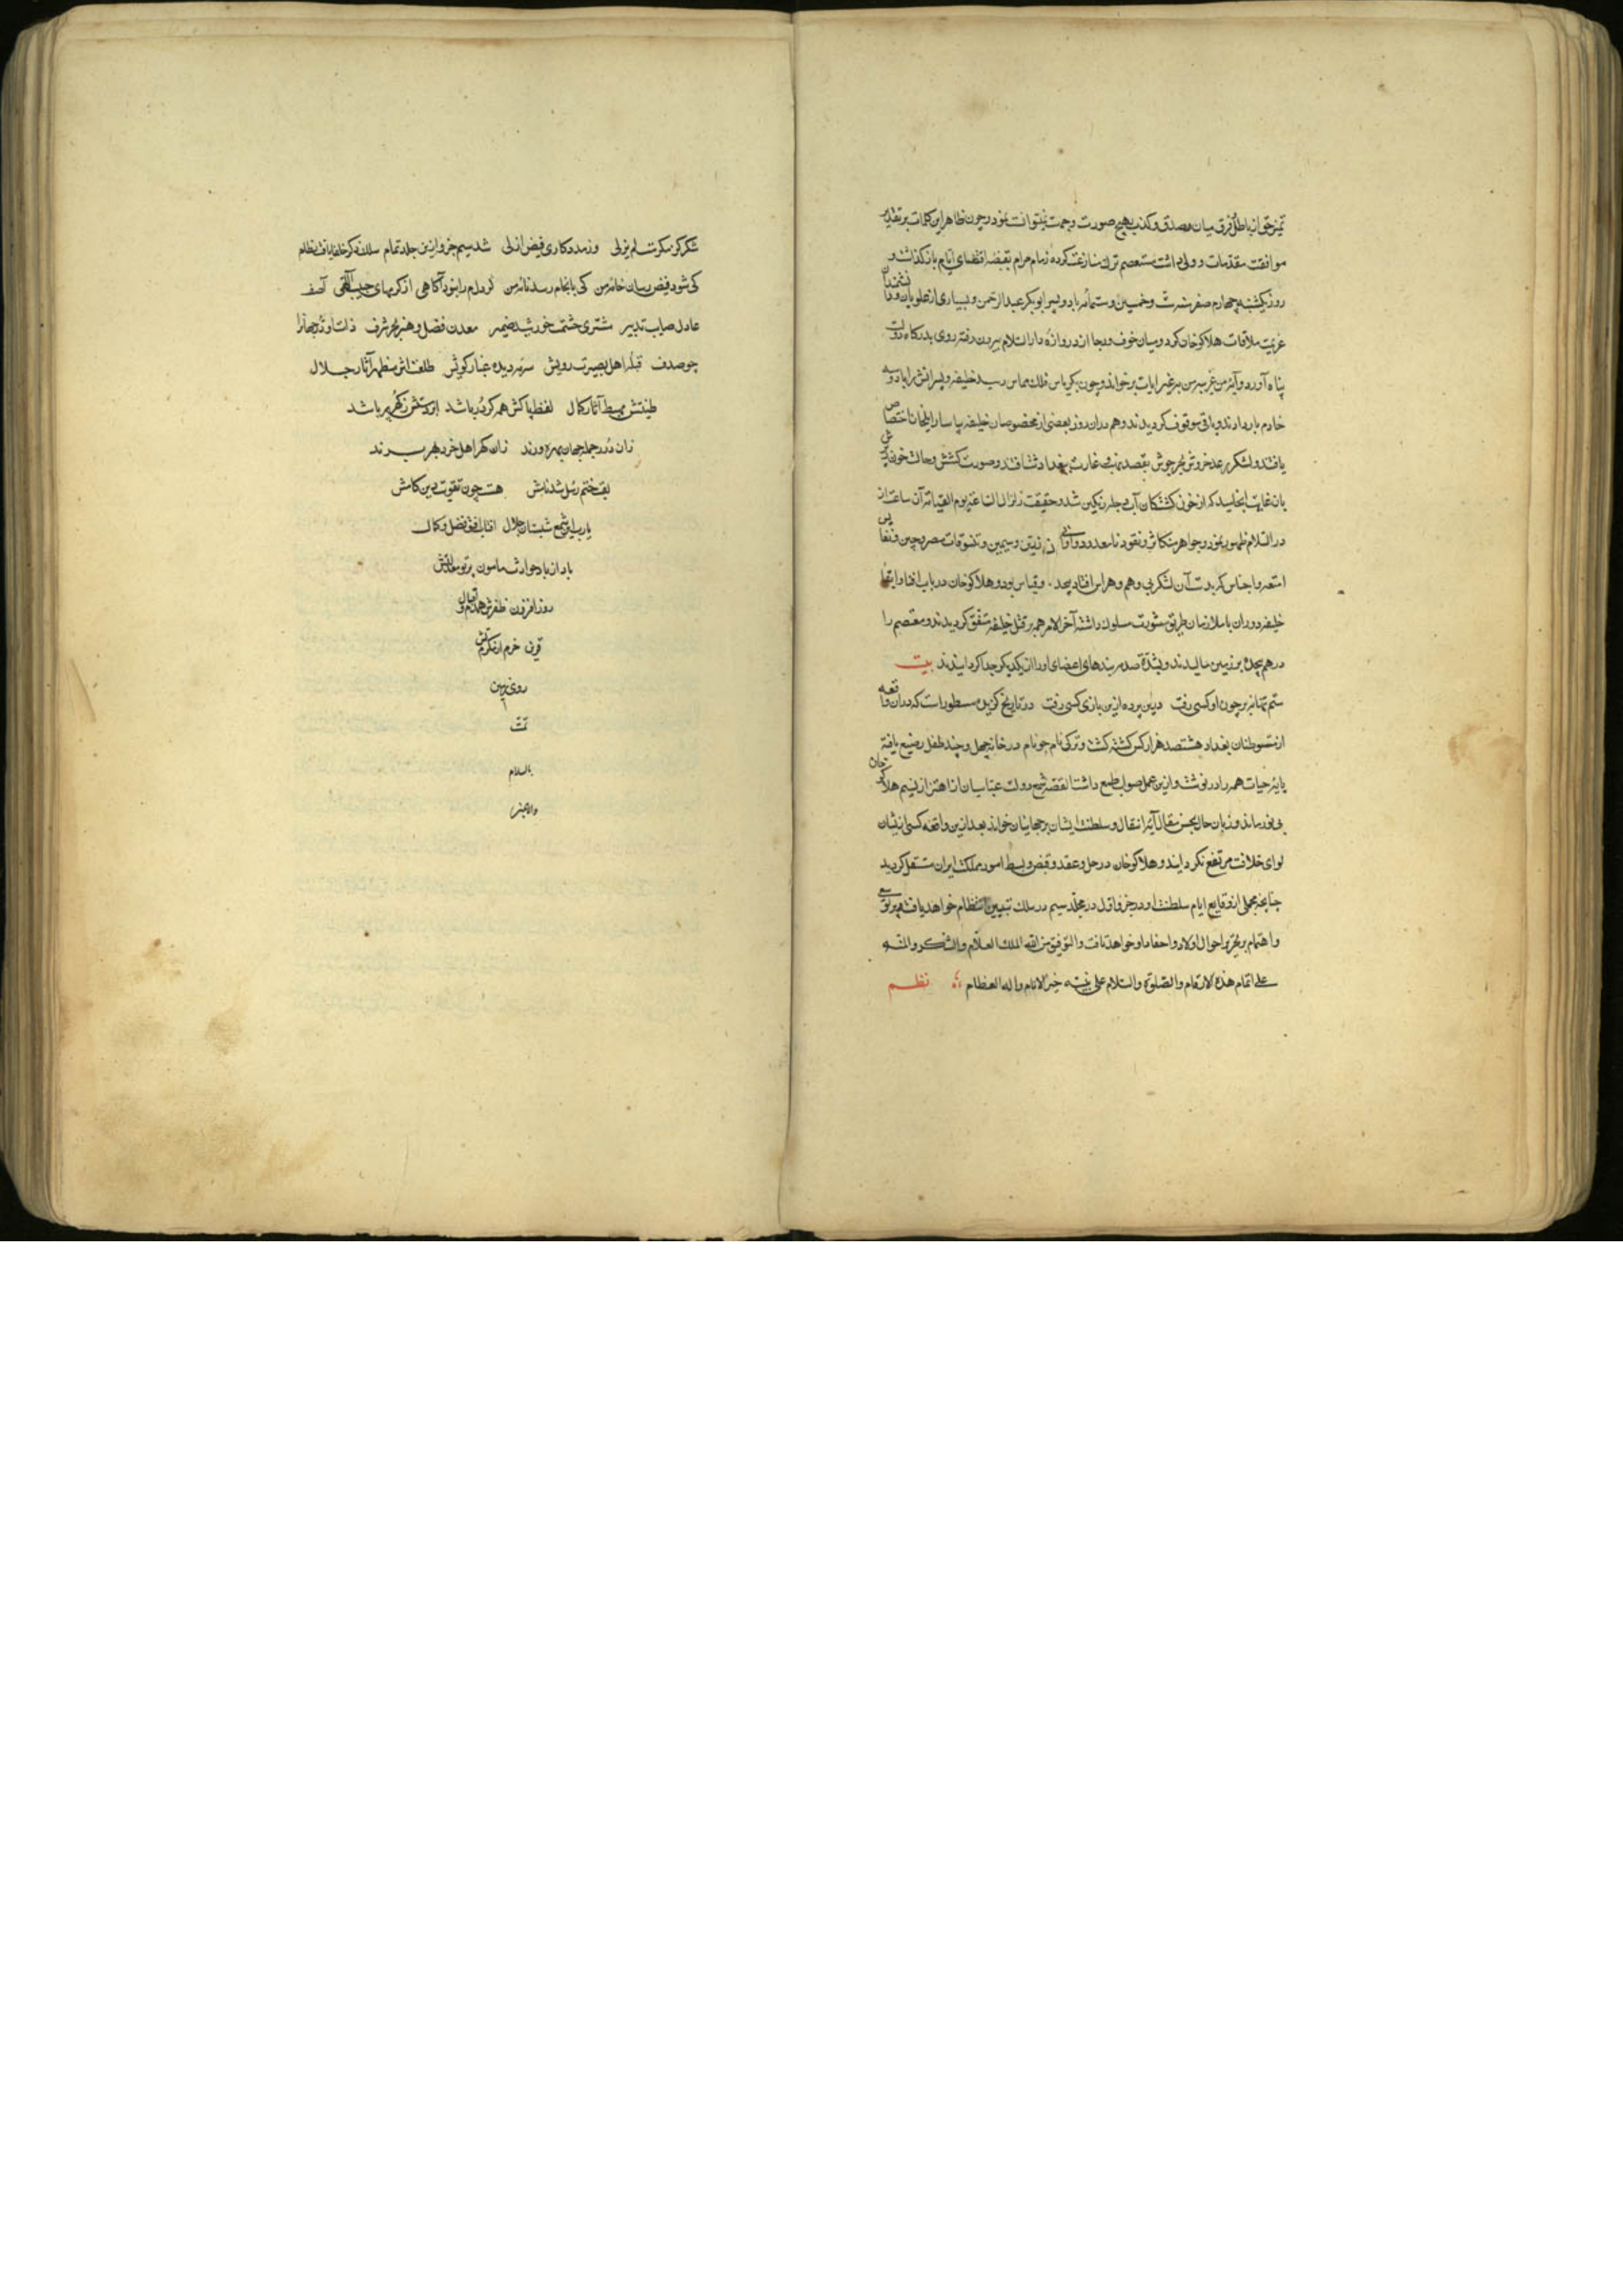 تمیز حق از باطل و فرق میان صدق و کذب بهیچ صورت وجهت نمیتوانست نمود و چون ظاهر این کلمات بر تقدیر
موافقت مقدمات دولت داشت مستعصم ترک منازعت کرده زمام مرام بقبضه اقتضای ایام باز گذاشت و
روز یکشنبه چهارم صفر سنه ست و خمسین و ستمائه با دو پسر ابوبکر و عبد الرحمن و بسیاری از علویان و دانشمندان
عزیمت ملاقات هلاکو خان کرد و میان خوف و رجا از دروازه دار السلام بیرون رفته روی بدرگاه دولت
پناه آورد و چون بکریاس فلک مماس رسید خلیفه و پسرانش را با دو سه
خادم بار دادند و باقی موقوف گردیدند و هم دران روز بعضی از مخصوصان خلیفه بیاسا رسیدند اختصاص
یافتند و لشکر رعد خروش بحر جوش بقصد نهب و غارت بغداد شتافتند و صورت کشش و حالت خون ریزش
بان غایت انجامید که از خون کشتگان آب دجله رنگین شد و حقیقت زلزال الساعة یوم القیامه آن ساعت از
دار السلام ظهور نمود و جواهر متکاثر و نقود نامعدود و اوانی زرین و سیمین و تنسوقات مصر و چین و نفایس
امتعه و اجناس که بدست آن لشکر بی وهم و هراس افتاد بیحد و قیاس بود و هلاکو خان در باب افنا و ابقاء
خلیفه دوران با ملازمان طریق مشورت مسلوک داشته آخر الامر همه بر قتل خلیفه متفق گردیدند و مستعصم را
در هم پیچیده بر زمین مالیدند و بشدة صدمه بندهای اعضای او را از یکدیگر جدا گردانیدند بیت
ستم تا نه بر چون او کسی رفت درین پرده ازین بازی کسی رفت در تاریخ گزیده مسطور است که در ان واقعه
از متوطنان بغداد هشتصد هزار کس کشته گشت و ترکی نام در خانه چهل و چند طفل رضیع یافته
حیات همه را در نوشت و ازین عمل صواب طمع داشت القصه شمع دولت عباسیان از اهتزاز نسیم هلاکو خان
بی نور ماند و زبان حال بحسن مقال آیه انتقال سلطنت ایشان بر جهانیان خواند بعد ازین واقعه کسی از ایشان
لوای خلافت مرتفع نگردانید و هلاکو خان در حل و عقد و قبض و بسط امور مملکت ایران مستقل گردید
چنانچه مجملی از وقایع ایام سلطنت او در جزو اول در مجلد سیم در سلک تبیین انتظام خواهد یافت و پرتو سعی
و اهتمام بر تحریر احوال اولاد و احفاد او خواهد تافت و التوفیق من الله الملک العلام والشکر و المنه
علی اتمام هذه الارقام والصلوة والسلام علی نبیه خیر الانام و اله العظام نظم
شکر کز مکرمت لم یزلی وز مددکاری فیض ازلی شد سیم جزو ازین جلد تمام سلک ذکر خلفا یافت نظام
کی شود فیض رسان خامه من کی بانجام رسد نامه من گر دلم را نبود آگاهی از کرمهای حبیب اللهی آصف
عادل صایب تدبیر مشتری حشمت خورشید ضمیر معدن فضل و هنر بحر شرف ذات او در جهانرا
چو صدف قبله اهل بصیرت رویش سرمه دیده غبار کویش طلعتش مظهر آثار جلال
طینتش مهبط آثار کمال لفظ پاکش همه گر در باشد از گهر پر باشد
زان درر جمله جهان بهره ورند زان گهر اهل خرد بهره برند
لقب ختم رسل شد نامش هست چون تقویت دین کامش
یارب این شمع شبستان جلال افتاب افق فضل و کمال
باد از باد حوادث مامون پرتو
روز افزون ظفرش همدم و اقبال
قرین خرم از مکرمتش
روی زمین
تمت
بالسلام